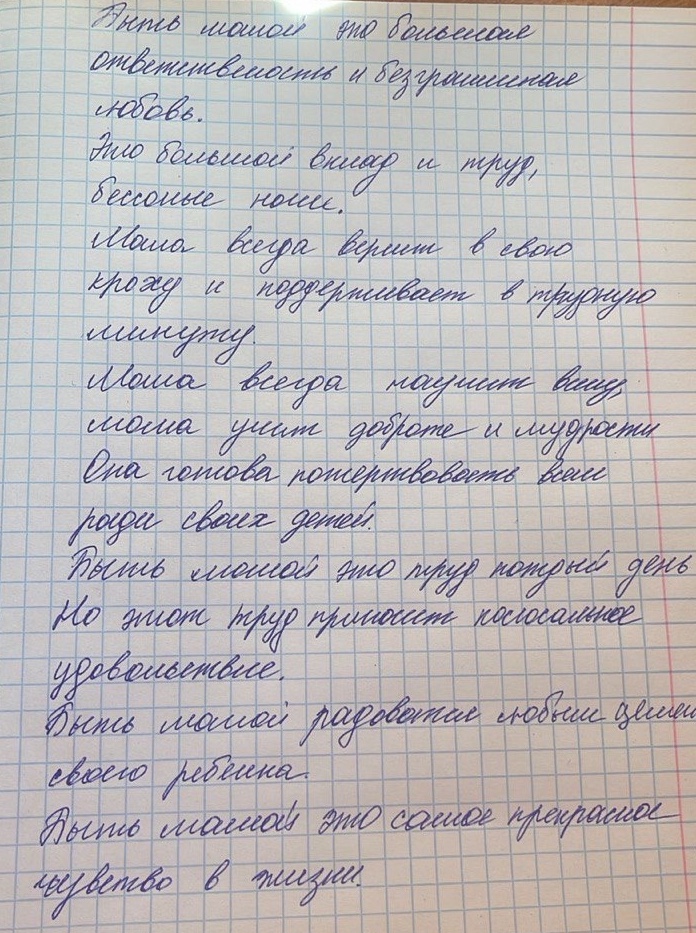 Быть мамой это большая
ответственость и безграничная
любовь.
Это большой вклад и труд,
бессоные ночи.
Мама всегда верит в свою
кроху и поддерживает в трудную
минуту.
Мама всегда научит всему,
мама учит доброте и мудрости
Она готова пожертвовать всем
ради своих детей.
Быть мамой это труд каждый день
Но этот труд приносит колосальное
удовольствие.
Быть мамой радоватся любым
своего ребенка.
Быть мамой это самое прекрасное
чувство в жизни.